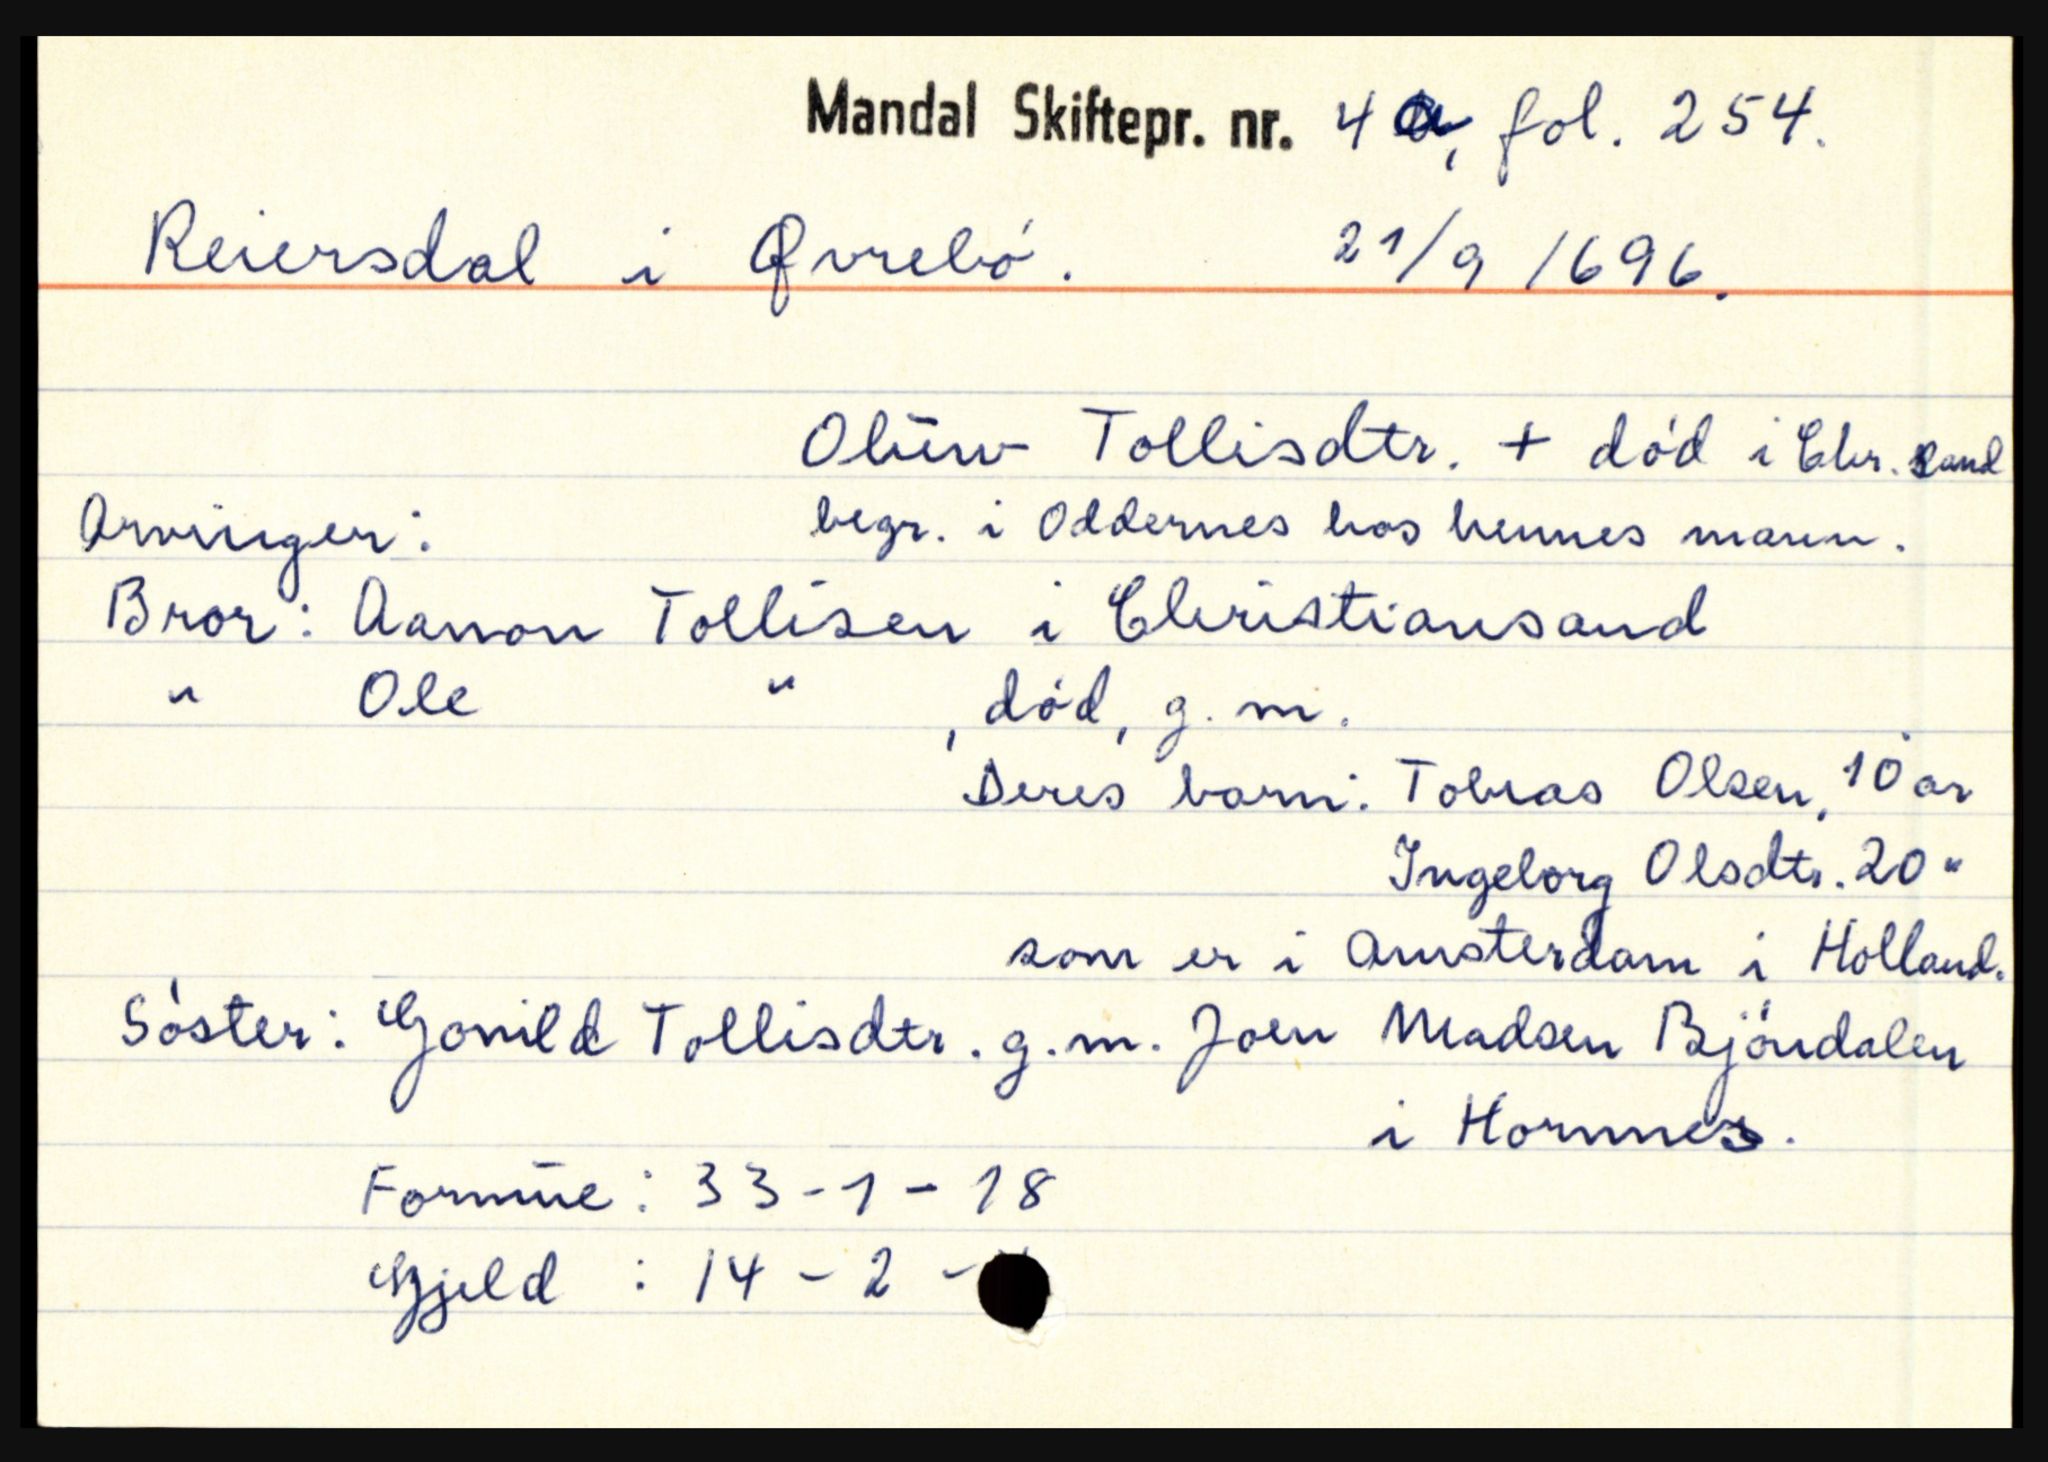 Mandal Skiftepr. nr. 4 a, fol. 254.
Reiersdal i Øvrebö. 21/9 1696.
Tollisdtr. + död i Chr. sand
Arvinger: begr. i Oddernes hos hennes mann.
Bror: Aanon Tollisen i Christiansand
" Ole " , död, g. m.
Deres barn: Tobias Olsen, 10 år
Ingeborg Olsdtr. 20 "
som er i Amsterdam i Holland.
Söster: Gonild Tollisdtr. g. m. Joen Madsen Bjöndalen
i Hornnes.
Formue: 33 - 1 - 18
Gjeld : 14 - 2 -